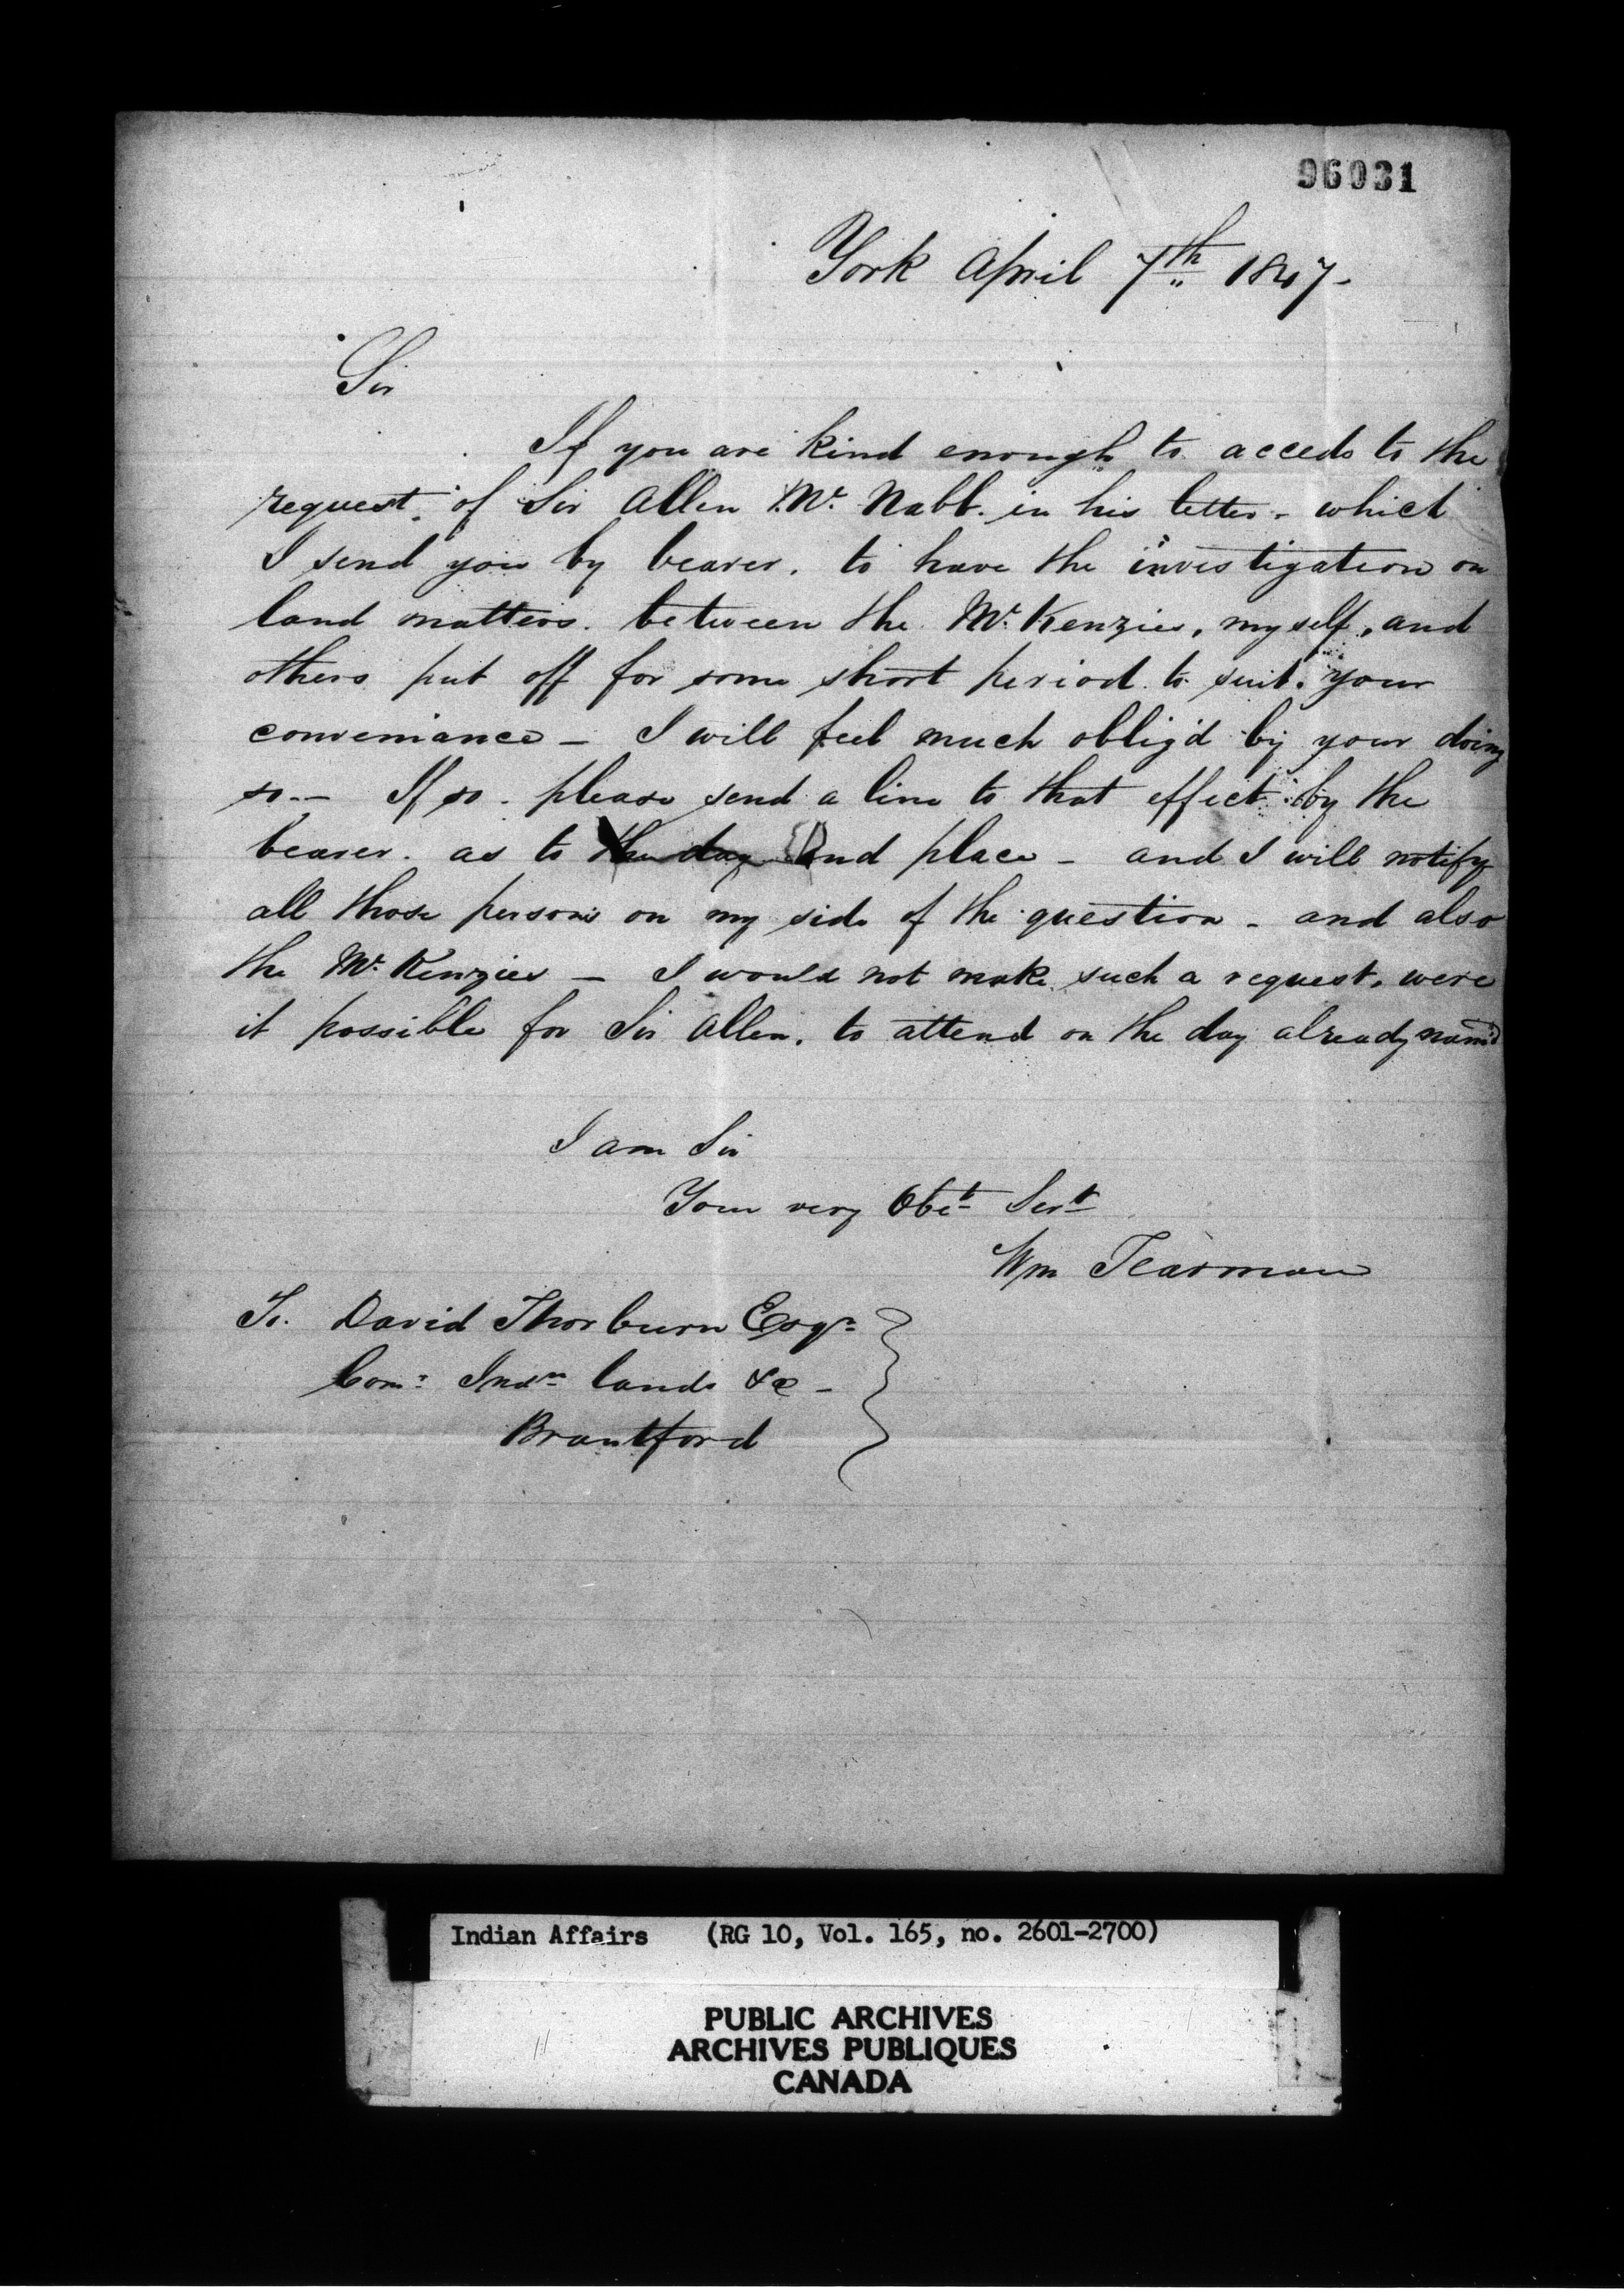 96031
York April 7th 1847-
Sir
If you are kind enough to accede to the
request. of Sir Allen Mc Nabb. in his letter - which
I send you by bearer. to have the investigation on
land matters. between the McKenzies, myself, and
others put off for some short period to suit your
conveniance - I will feel much oblig'd by your doing
so.- If so. please send a line to that effect by the
bearer. as to the day and place - and I will notify
all those persons on my side of the question - and also
the McKenzies - I would not make such a request, were
it possible for Sir Allen, to attend on the day already nam'd
I am Sir
Your very Obt Sert
Wm
To. David Thorburn Esqr
Comr Indn lands &c -
Brantford
Indian Affairs (RG 10, Vol. 165, no. 2601-2700)
PUBLIC ARCHIVES
ARCHIVES PUBLIQUES
CANADA